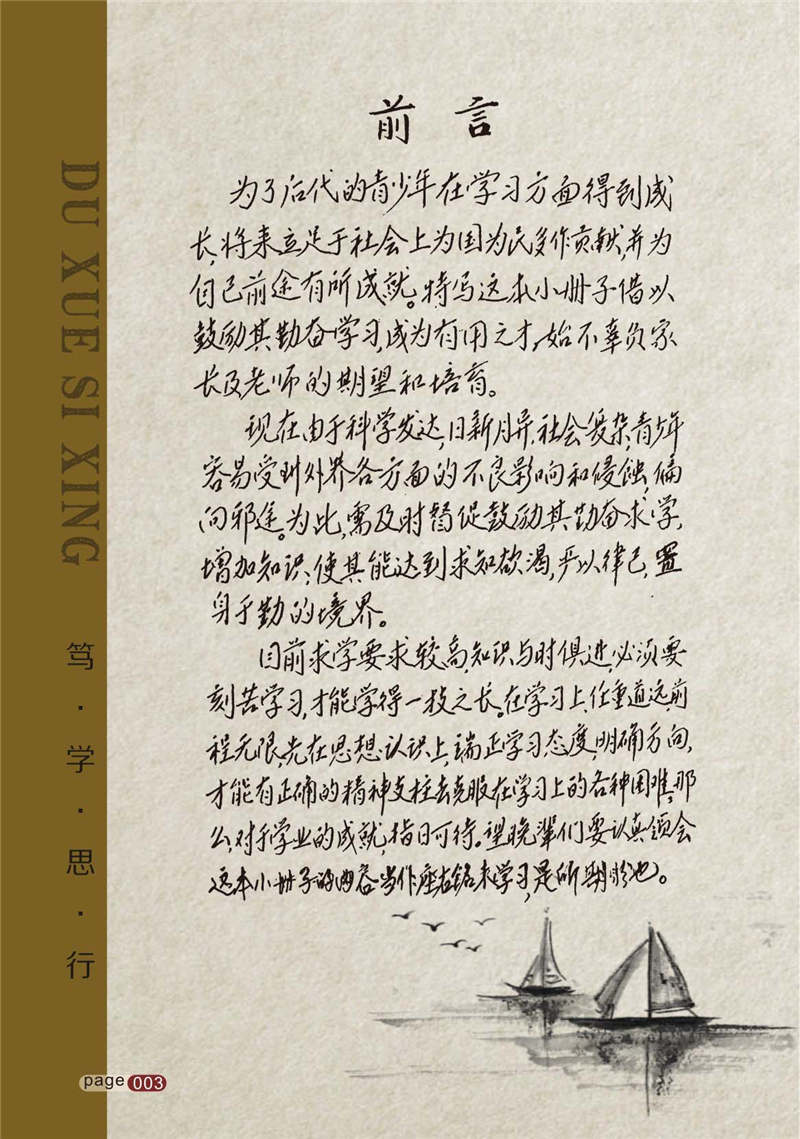 前言
为了后代的青少年在学习方面得到成
长,将来立足于社会上为国为民多作贡献,并为
自己前途有所成就。特写这本小册子借以
鼓励其勤奋学习,成为有用之才,始不辜负家
长及老师的期望和培育。
现在由于科学发达,日新月异,社会复杂,青少年
容易受到外界各方面的不良影响和侵蚀,偏
向邪途。为此,需及时督促鼓励其勤奋求学,
增加知识,使其能达到求知欲渴,严以律己,置
身于勤的境界。
目前求学要求较高,知识与时俱进,必须要
刻苦学习,才能学得一技之长。在学习上,任重道远,前
程无限,先在思想认识上,端正学习态度,明确方向,
才能有正确的精神支柱去克服在学习上的各种困难,那
么,对于学业的成就,指日可待。望晚辈们要认真领会
这本小册子的内容当作座右铭来学习,是所期盼也。
DU XUE SI XING
笃·学·思·行
page 003